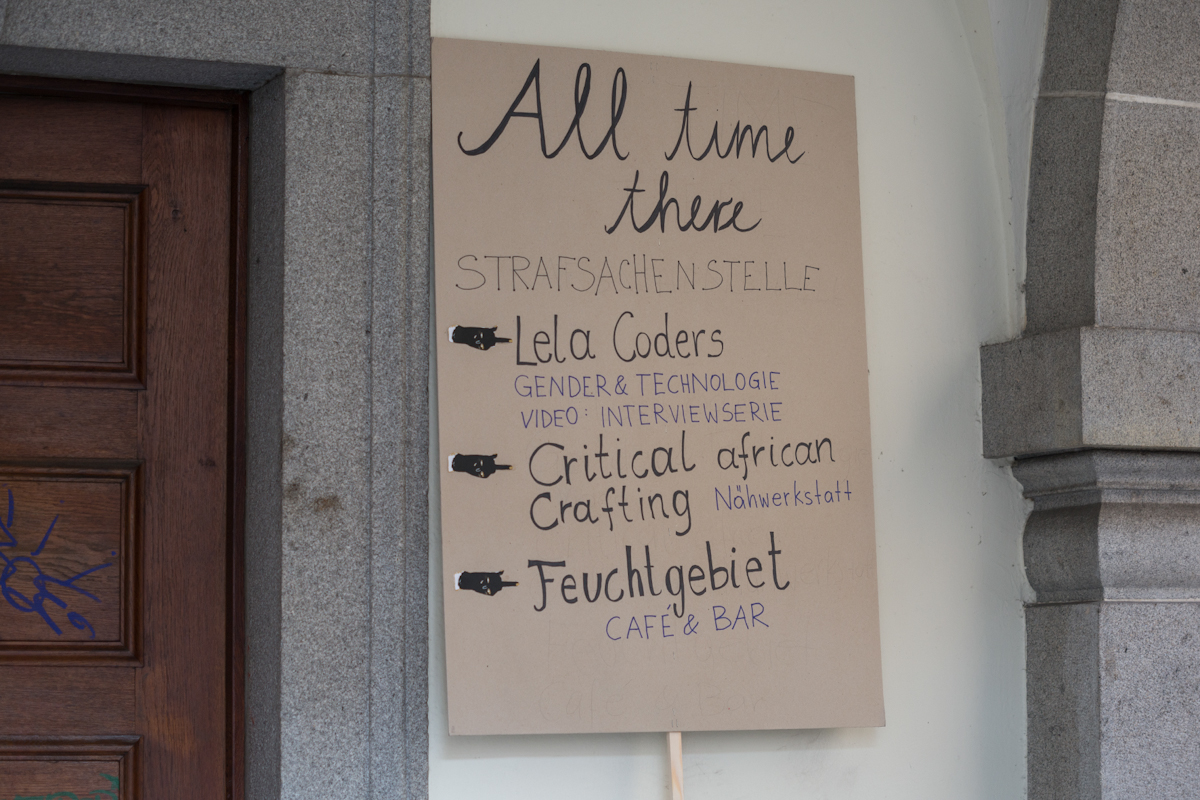 All time
there
STRAFSACHENSTELLE
Lela Coders
GENDER & TECHNOLOGIE
VIDEO: INTERVIEWSERIE
Critical african
Crafting Nähwerkstatt
Feuchtgebiet
CAFÉ & BAR